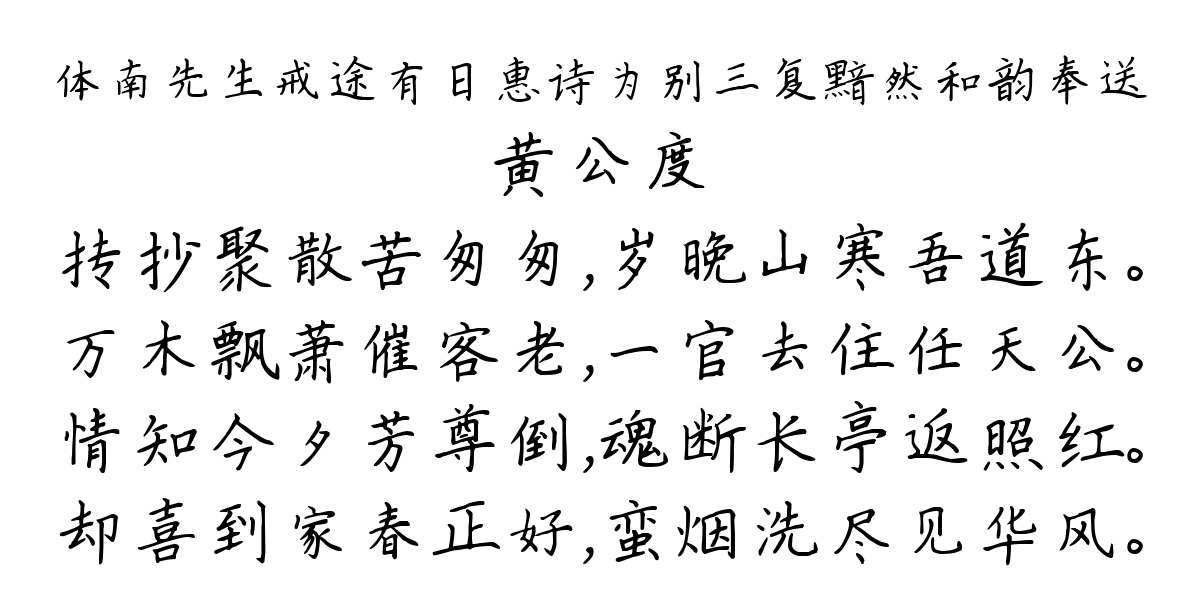 体南先生戒途有日惠诗为别三复黯然和韵奉送
黄公度
抟抄聚散苦匆匆,岁晚山寒吾道东。
万木飘萧催客老,一官去住任天公。
情知今夕芳尊倒,魂断长亭返照红。
却喜到家春正好,蛮烟洗尽见华风。